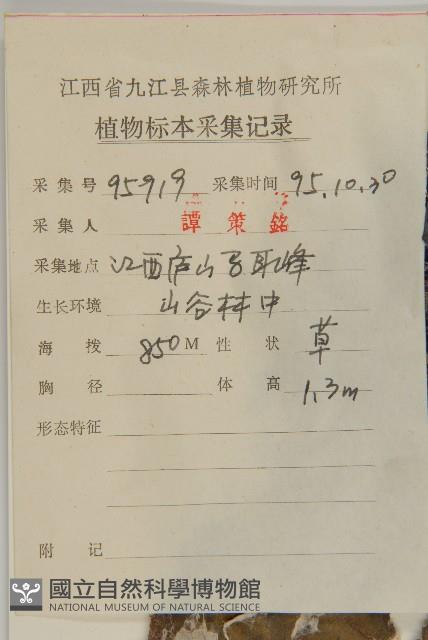 江西省九江县森林植物研究所
植物标本采集记录
采集号 95919 采集时间 95.10.30
采集人 譚策銘
采集地点 江西庐山马耳峰
生长环境 山谷林中
海拨 850 M 性状 草
胸径 体高 1.3m
形态特征
附记
國立自然科學博物館
NATIONAL MUSEUM OF NATURAL SCIENCE